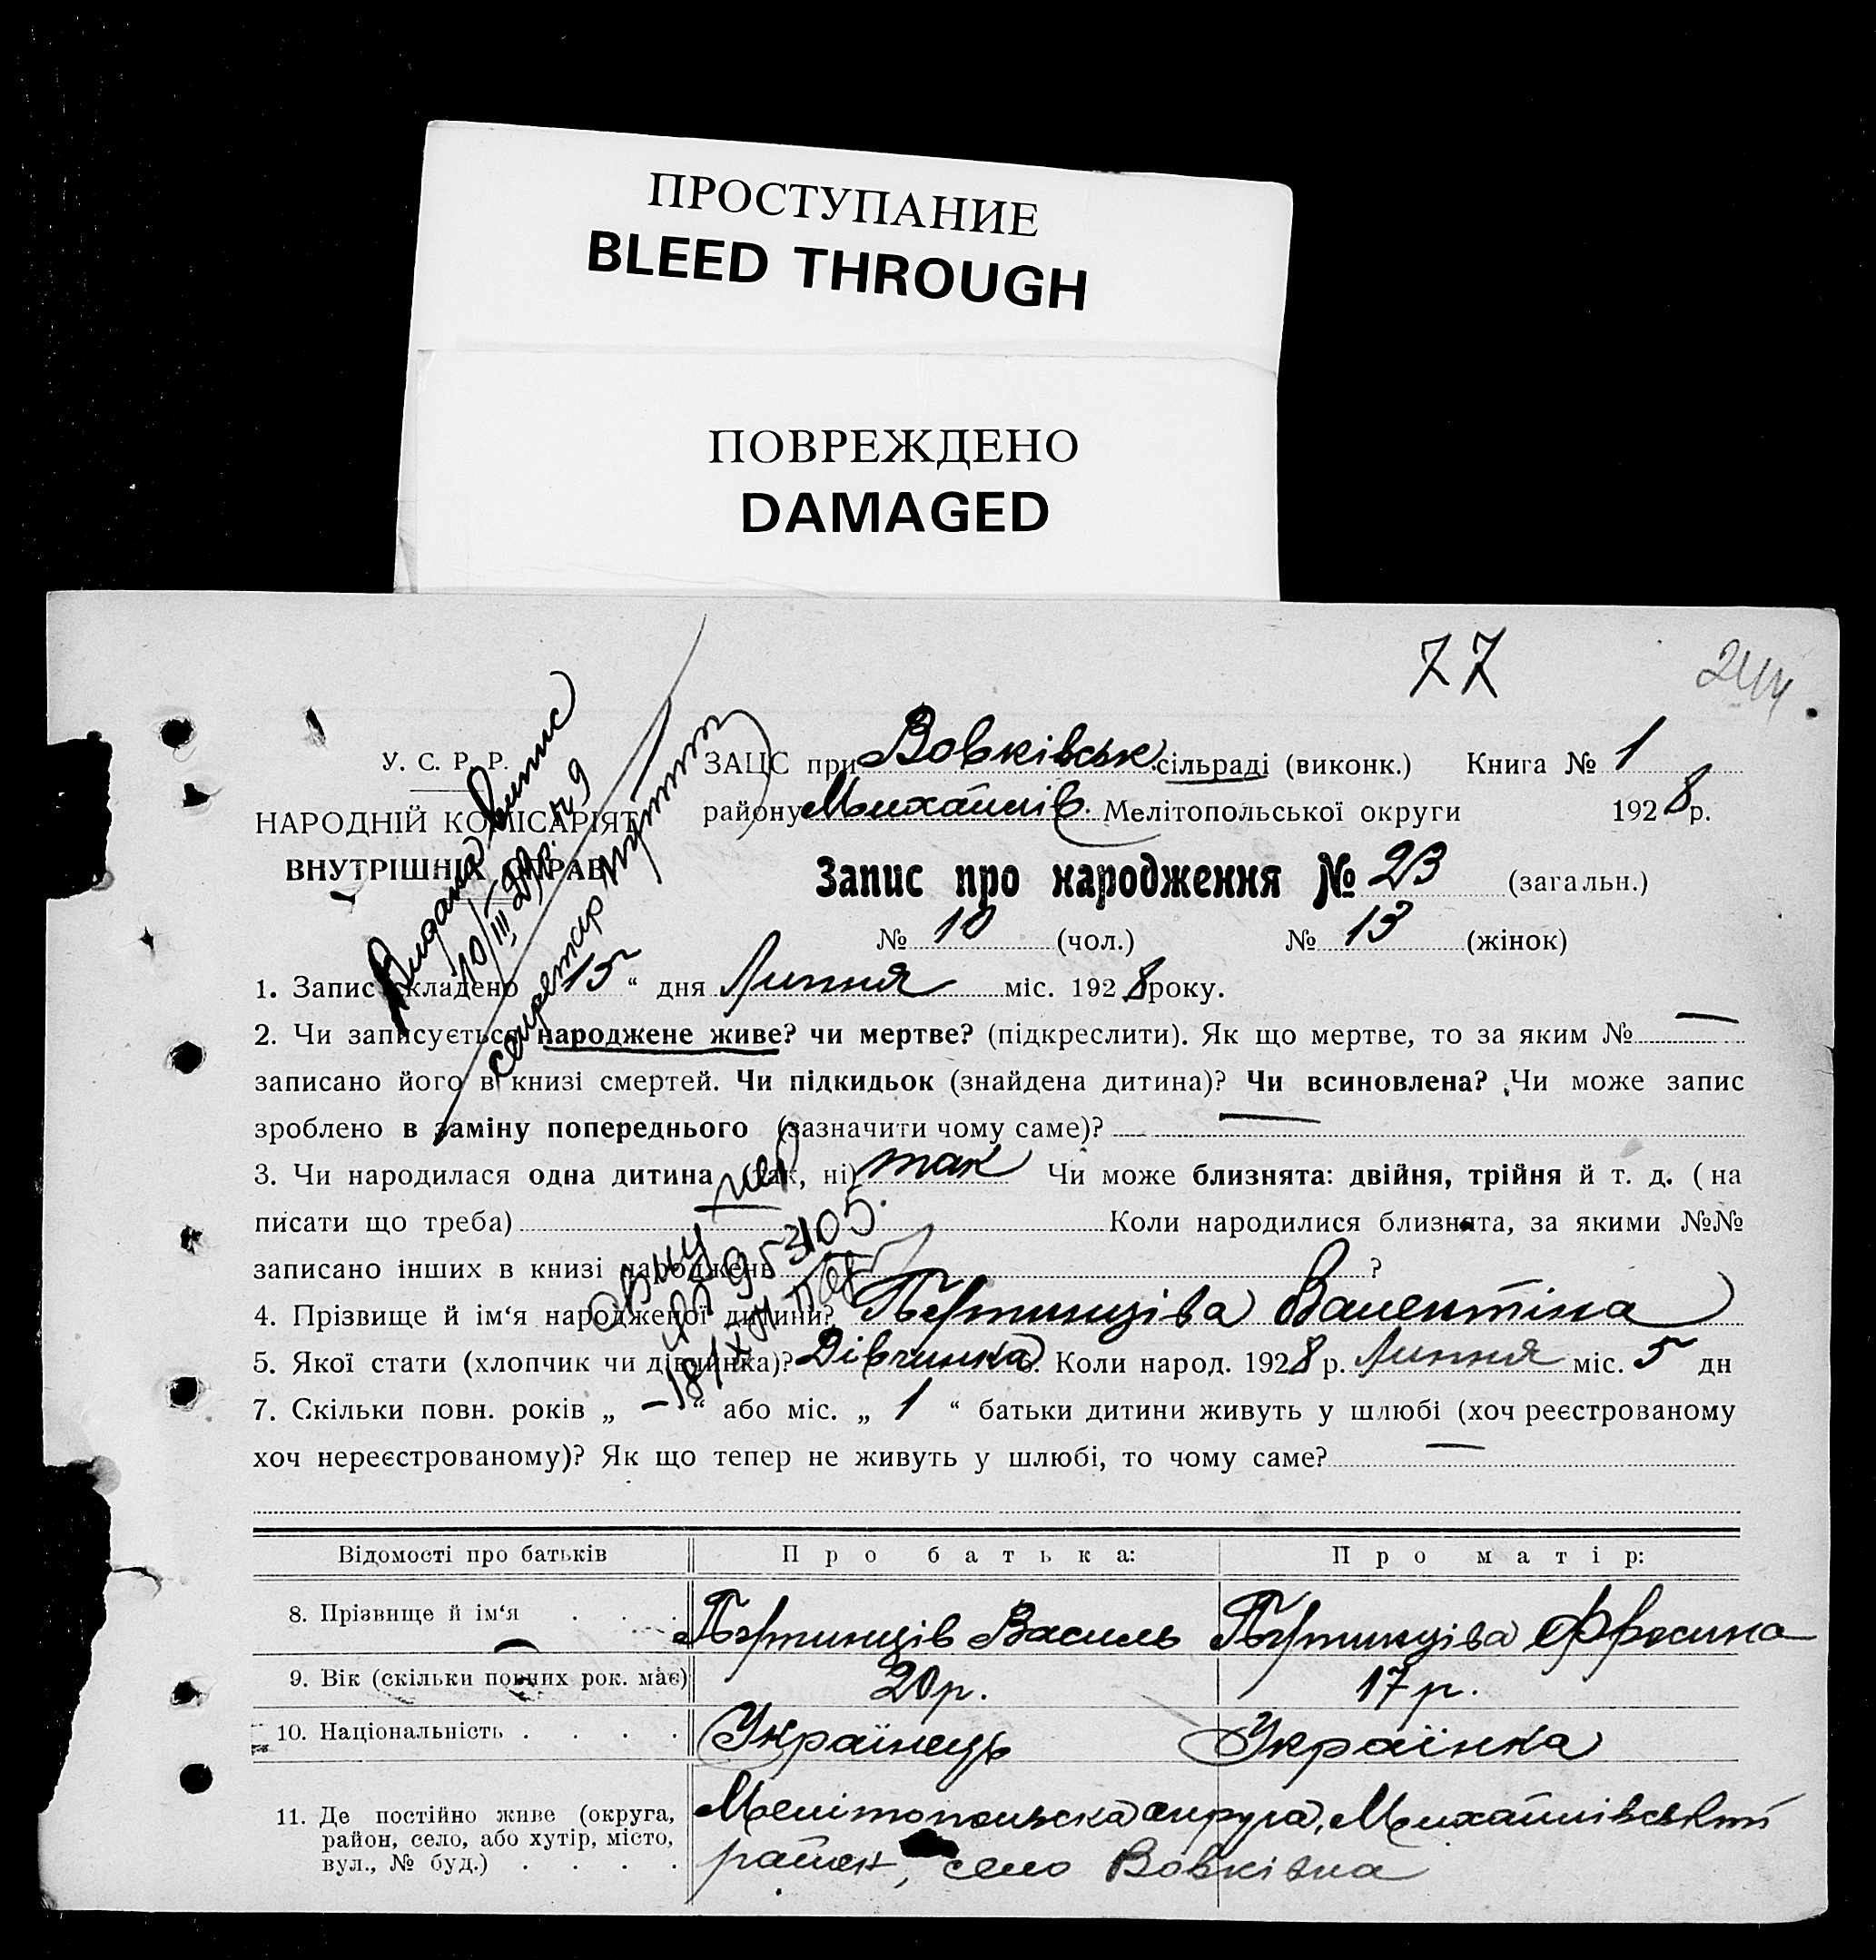 ПРОСТУПАНИЕ
BLEED THROUGH
ПОВРЕЖДЕНО
DAMAGED
77
244
У. С. Р. Р.
НАРОДНІЙ КОМІСАРІЯТ
ВНУТРІШНІХ СПРАВ
ЗАЦС при Вовківськ сільраді (виконк.) Книга № 1
району Михайлів. Мелітопольської округи 1928 р.
Запис про народження № 23 (загальн.)
№ 10 (чол.) № 13 (жінок)
1. Запис складено 15 “ дня Липня міс. 1928 року.
2. Чи записується народжене живе? чи мертве? (підкреслити). Як що мертве, то за яким № —
записано його в книзі смертей. Чи підкидьок (знайдена дитина)? Чи всиновлена? Чи може запис
зроблено в заміну попереднього (зазначити чому саме)? —
3. Чи народилася одна дитина (так, ні) так Чи може близнята: двійня, трійня й т. д. (на
писати що треба) Коли народилися близнята, за якими №№
записано інших в книзі народжень ?
4. Прізвище й ім‘я народженої дитини? Валентіна
5. Якої стати (хлопчик чи дівчинка)? Дівчинка. Коли народ. 1928 р. Липня міс. 5 дн
7. Скільки повн. років „ — “ або міс. „ 1 “ батьки дитини живуть у шлюбі (хоч реєстрованому
хоч нереєстрованому)? Як що тепер не живуть у шлюбі, то чому саме? —
Відомості про батьків Про батька: Про матір:
8. Прізвище й ім‘я Василь Фросина
9. Вік (скільки повних рок. має) 20 р. 17 р.
10. Національність Українець Українка
11. Де постійно живе (округа,
район, село, або хутір, місто,
вул., № буд.)
Мелітопольська округа, Михайлівський
район, село Вовківка